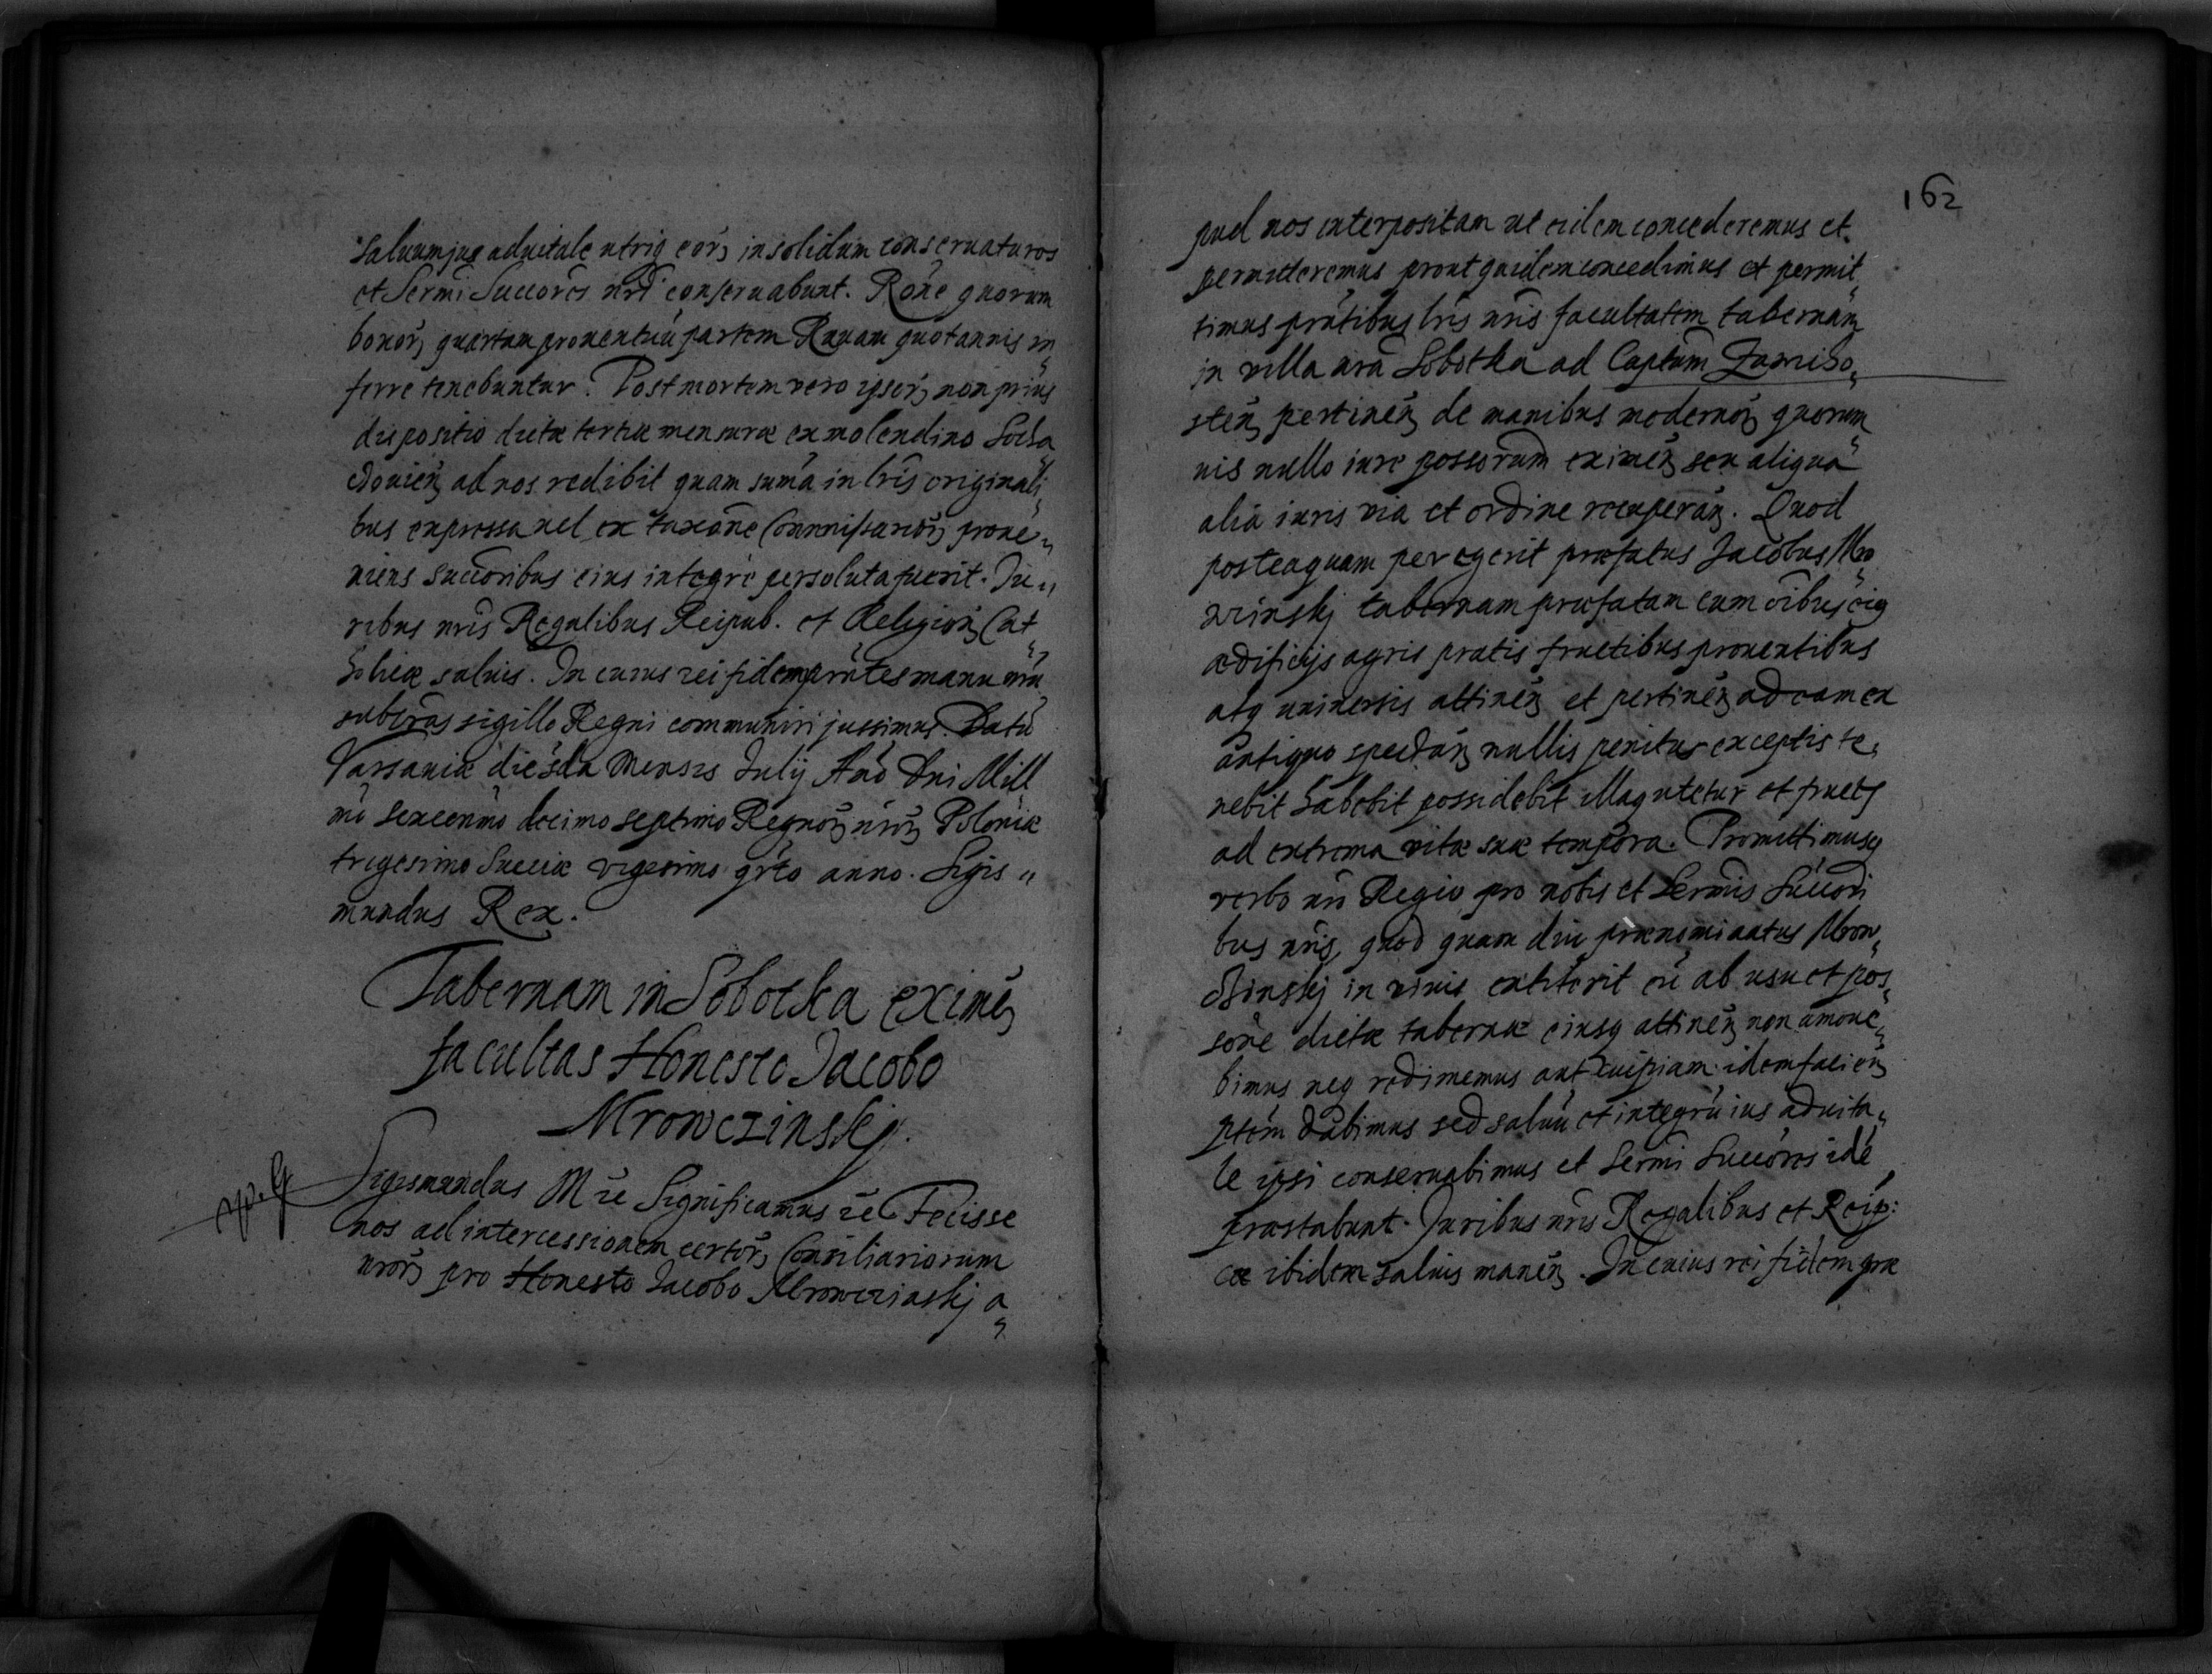 saluum jus aduitale utriq eorz in solidum conseruaturos
et Sermi Succores nrd conseruabunt. Rone quorum
bonorz quartam prouentuu partem Rauam quotannis in„
ferre tenebuntur. Post mortem vero ipsorz non prius
dispositio dictæ tertiæ mensuræ ex molendino Socha„
ad nos redibit quam suma in lris originali„
bus expressa uel ex taxone Commissariorz proue„
niens succoribus eius integre persoluta fuerit. Iu„
ribus nris Regalibus Reipub. et Religionz Cat„
holicæ saluis. In cuius rei fidem pntes manu nra
subscras sigillo Regni communiri jussimus. Datu
Varsauiæ die Mensis Julij Ano Dni Mill
mo sexcenmo decimo septimo Regnorz nrorz Poloniæ
trigesimo Sueciæ vigesimo qrto anno. Sigis„
mundus Rex.
Tabernam in Sobotka eximenz
facultas Honesto Jacobo
Mrowczinskj.
Sigismundus III re Significamus re Fecisse
nos ad intercessionem certorz Consiliariorum
nrorz pro Honesto Jacobo Mrowczinskj a„
162
pud nos interpositam ut eidem concederemus et
permitteremus prout quidem concedimus et permit„
timus pntibus lris nris facultatem tabernam
in villa nra Sobotka ad Captum Zawicho„
sten pertinenz de manibus modernorz quorum„
uis nullo iure possorum eximenz seu aliqua
alia iuris via et ordine recuperanz. Quod
posteaquam peregerit præfatus Jacobus Mro„
wzinskj tabernam præfatam cum oibus eiq
ædificijs agris pratis fructibus prouentibus
atq uniuersis attinenz et pertinenz ad eam ex
antiquo spectanz nullis penitus exceptis te„
nebit habebit possidebit utetur et fruetr
ad extrema vitæ suæ tempora. Promittimusq
verbo nro Regio pro nobis et Sermis Succori
bus nris, quod quam diu prænominatus Mrow„
czinskj in viuis extiterit eu ab usu et pos„
sone dictæ tabernæ eiusq attinenz non amoue„
bimus neq redimemus aut cuipiam idem facienz
ptem dabimus sed saluu et integru ius aduita„
le ipsi conseruabimus et Sermi Succores ide
præstabunt. Iuribus nris Regalibus et Reip:
cæ ibidem saluis manenz. In cuius rei fidem præ